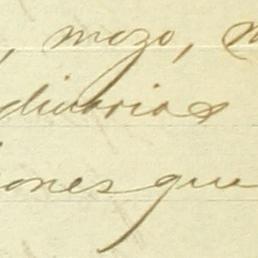 , mozo, m
dinarias
iones que